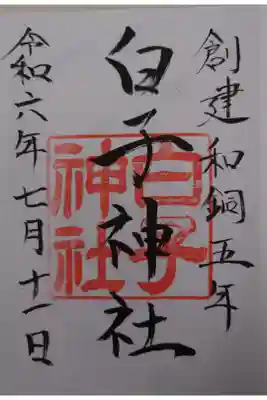 創建和銅五年
白子神社
白子
神社
令和六年七月十一日